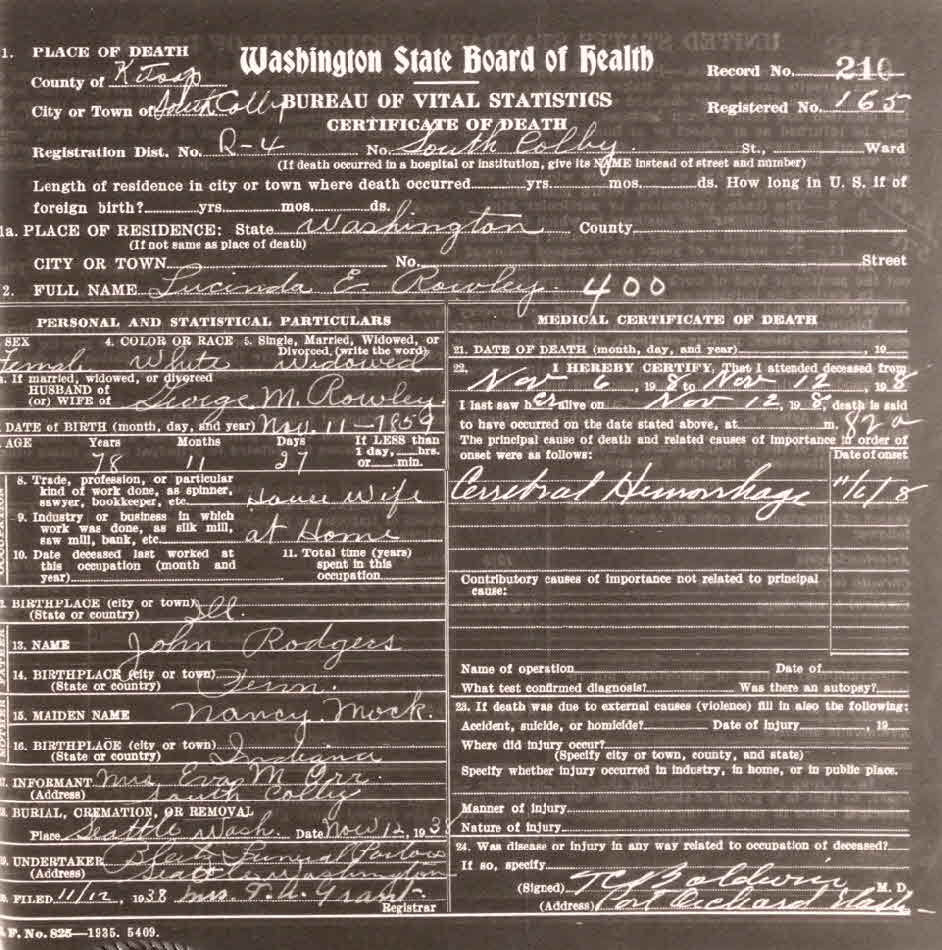 1. PLACE OF DEATH
Washington State Board of Health
County of Kitsap
Record No. 210
City or Town of South Colby
BUREAU OF VITAL STATISTICS
Registered No. 165
CERTIFICATE OF DEATH
Registration Dist. No. R-4 No. South Colby St., Ward
(If death occurred in a hospital or institution, give its NAME instead of street and number)
Length of residence in city or town where death occurred yrs. mos. ds. How long in U. S. if of
foreign birth? yrs. mos. ds.
1a. PLACE OF RESIDENCE: State Washington County
(If not same as place of death)
CITY OR TOWN No. Street
2. FULL NAME Lucinda E Rowley 400
PERSONAL AND STATISTICAL PARTICULARS
SEX 4. COLOR OR RACE 5. Single, Married, Widowed, or
Divorced, (write the word)
Female White Widowed
If married, widowed, or divorced
HUSBAND of
(or) WIFE of George M. Rowley
DATE OF BIRTH (month, day, and year) Nov. 11—1859
AGE Years Months Days If LESS than
1 day, hrs.
or min.
78 11 27
8. Trade, profession, or particular
kind of work done, as spinner,
sawyer, bookkeeper, etc. House Wife
9. Industry or business in which
work was done, as silk mill,
saw mill, bank, etc. at Home
10. Date deceased last worked at
this occupation (month and
year)
11. Total time (years)
spent in this
occupation
OCCUPATION
BIRTHPLACE (city or town)
(State or country) Ill.
FATHER
13. NAME John Rodgers
14. BIRTHPLACE (city or town)
(State or country) Tenn.
MOTHER
15. MAIDEN NAME Nancy Mock.
16. BIRTHPLACE (city or town)
(State or country) Indiana
INFORMANT Mrs Eva M Orr
(Address) South Colby
BURIAL, CREMATION, OR REMOVAL
Place Seattle Wash. Date Nov 12, 1938
UNDERTAKER Bleitz Funeral Parlors
(Address) Seattle Washington
FILED 11/12, 1938 Mrs. T. A. Grant
Registrar
F. No. 825—1935. 5409.
MEDICAL CERTIFICATE OF DEATH
21. DATE OF DEATH (month, day, and year) , 19
22. I HEREBY CERTIFY, That I attended deceased from
Nov 6, 198 to Nov 12, 198
I last saw her alive on Nov 12, 198, death is said
to have occurred on the date stated above, at m. 82a
The principal cause of death and related causes of importance in order of
onset were as follows:
Date of onset
Cerrebral Hemorrhage 11/6/8
Contributory causes of importance not related to principal
cause:
Name of operation Date of
What test confirmed diagnosis? Was there an autopsy?
23. If death was due to external causes (violence) fill in also the following:
Accident, suicide, or homicide? Date of injury , 19
Where did injury occur?
(Specify city or town, county, and state)
Specify whether injury occurred in industry, in home, or in public place.
Manner of injury
Nature of injury
24. Was disease or injury in any way related to occupation of deceased?
If so, specify
(Signed) Baldwin M. D.
(Address) Port Orchard Wash